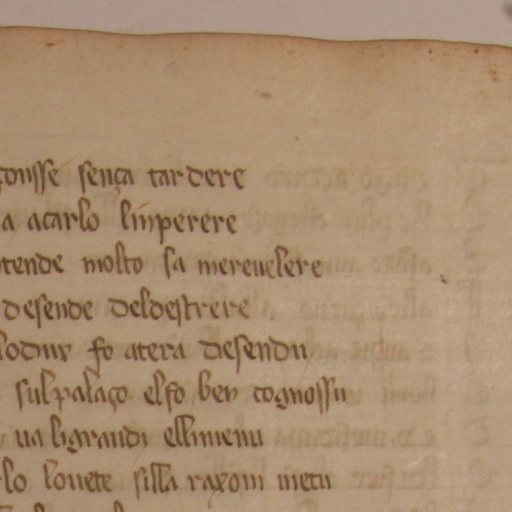 çonsse sença tardere
a acarlo linperere
tende molto sa mereuelere
desende deldestrere
lodux fo atera desendu
sulpalaço elfo ben cognossu
ua ligrandi ellimenu
lo louete silla raxoni metu